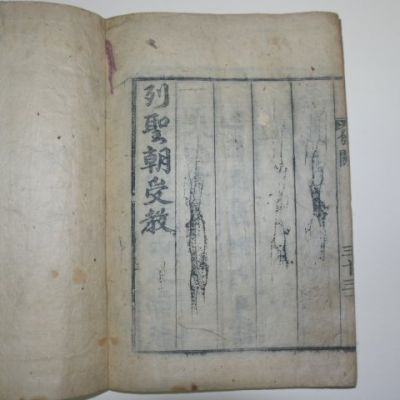 列聖朝受教
三十三